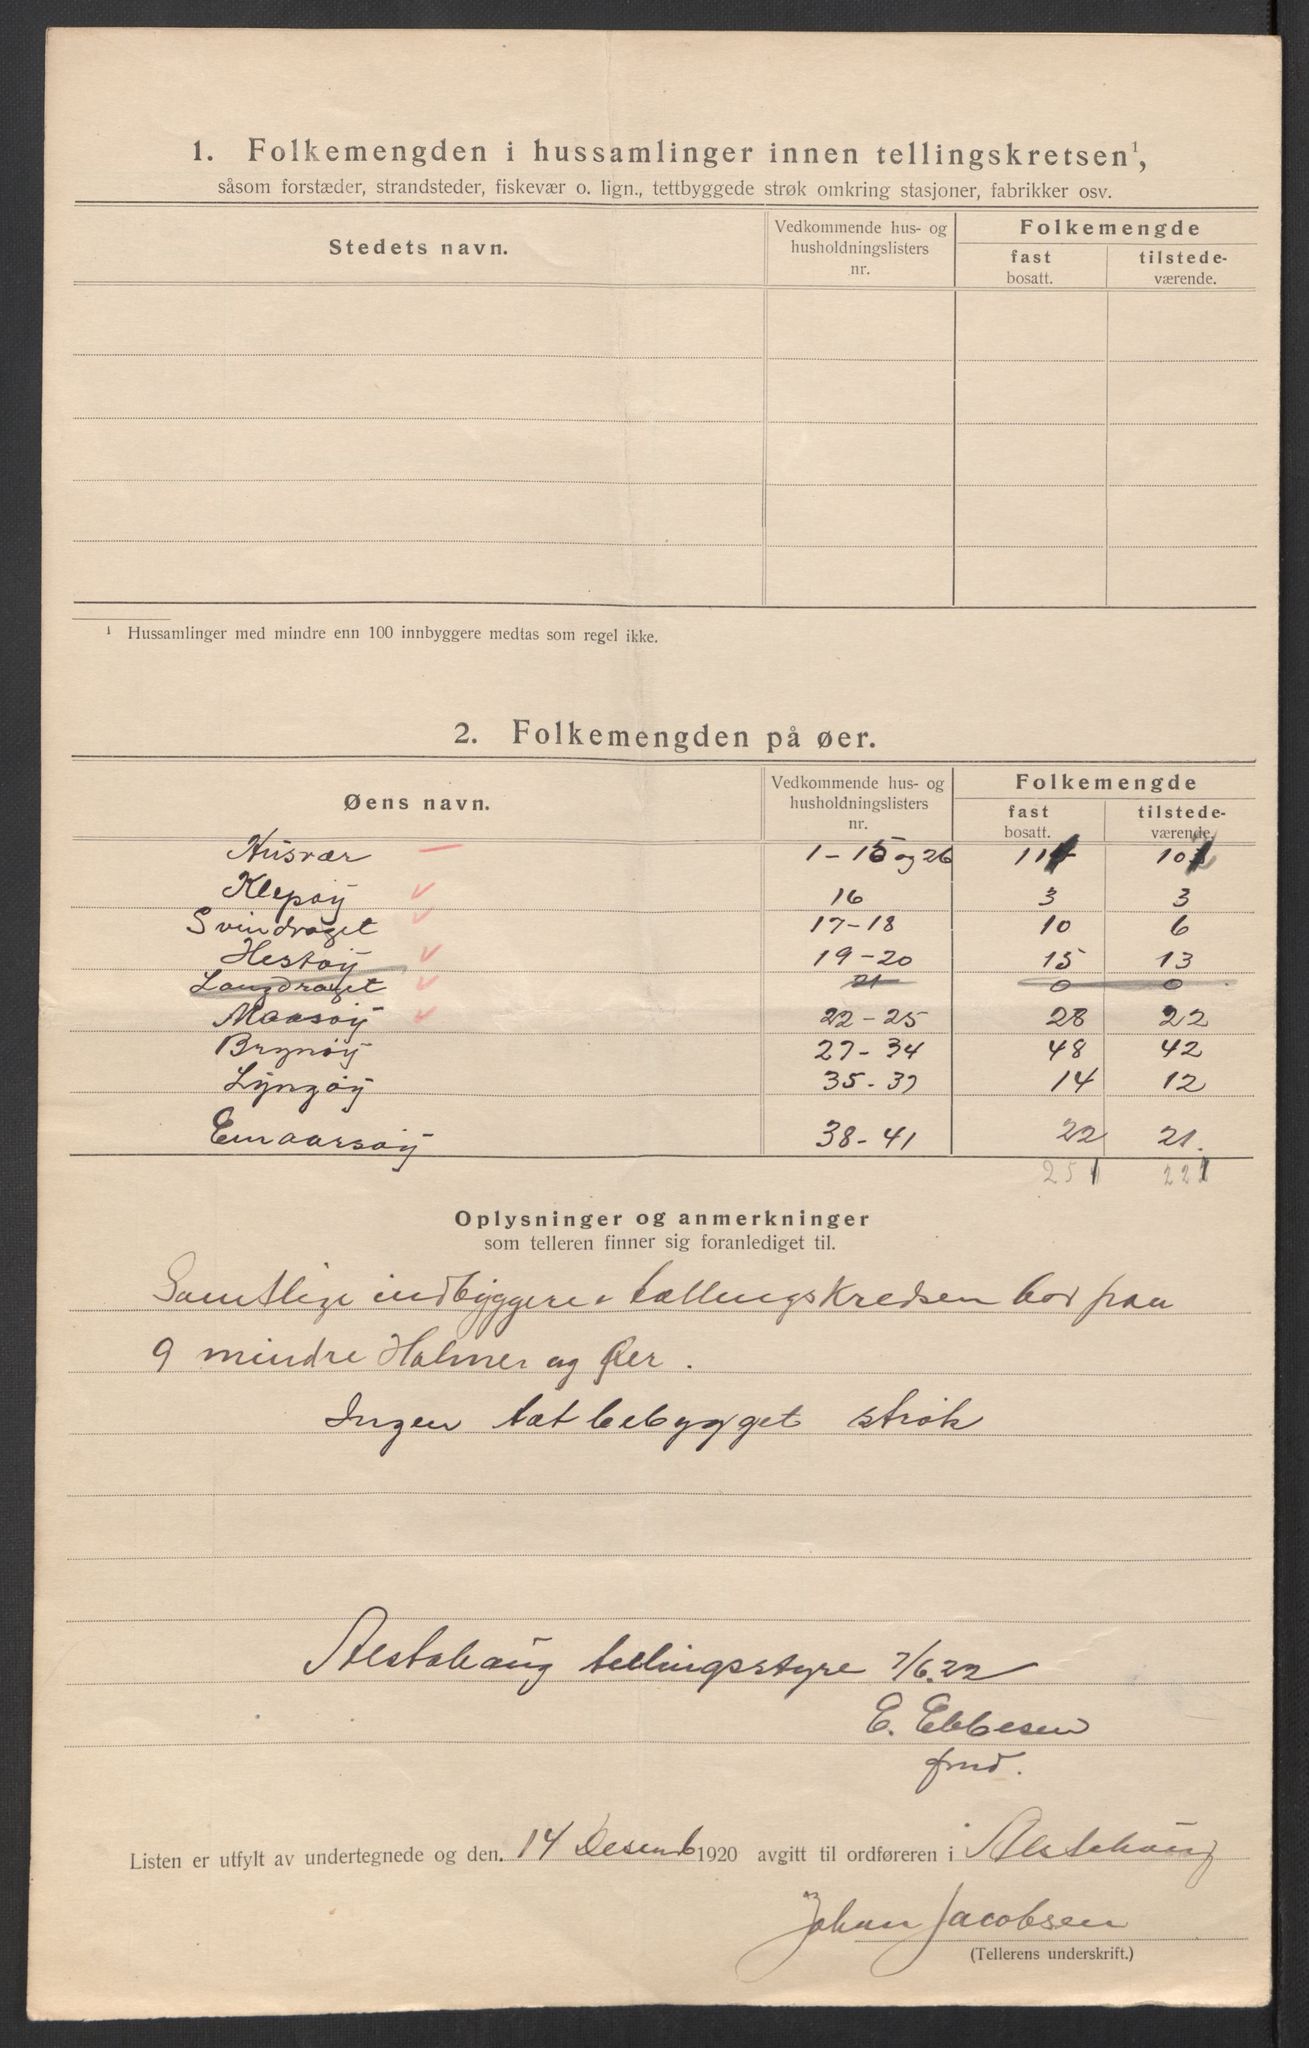 1. Folkemengden i hussamlinger innen tellingskretsen¹,
såsom forstæder, strandsteder, fiskevær o. lign., tettbyggede strøk omkring stasjoner, fabrikker osv.
Stedets navn.
Vedkommende hus- og husholdningslisters nr.
Folkemengde
fast bosatt.
tilstede-værende.
¹ Hussamlinger med mindre enn 100 innbyggere medtas som regel ikke.
2. Folkemengden på øer.
Øens navn.
Vedkommende hus- og husholdningslisters nr.
Folkemengde
fast bosatt.
tilstede-værende.
Husvær 1-15 og 26 111 102
Klepøy 16 3 3
Svindraget 17-18 10 6
Hestøy 19-20 15 13
Langdraget 21 0 0
Maasøy 22-25 28 22
Brynøy 27-34 48 42
Lyngøy 35-37 14 12
Emaarsøy 38-41 22 21.
251 221
Oplysninger og anmerkninger
som telleren finner sig foranlediget til.
Samtlige indbyggere i tællingskredsen bor paa
9 mindre Holmer og Øer.
Ingen tæt bebygget strøk
Alstahaug tellingsstyre 7/6.22
E. Ebbesen
fmd.
Listen er utfylt av undertegnede og den. 14 Desemb 1920 avgitt til ordføreren i Alstahaug
Johan Jacobsen
(Tellerens underskrift.)